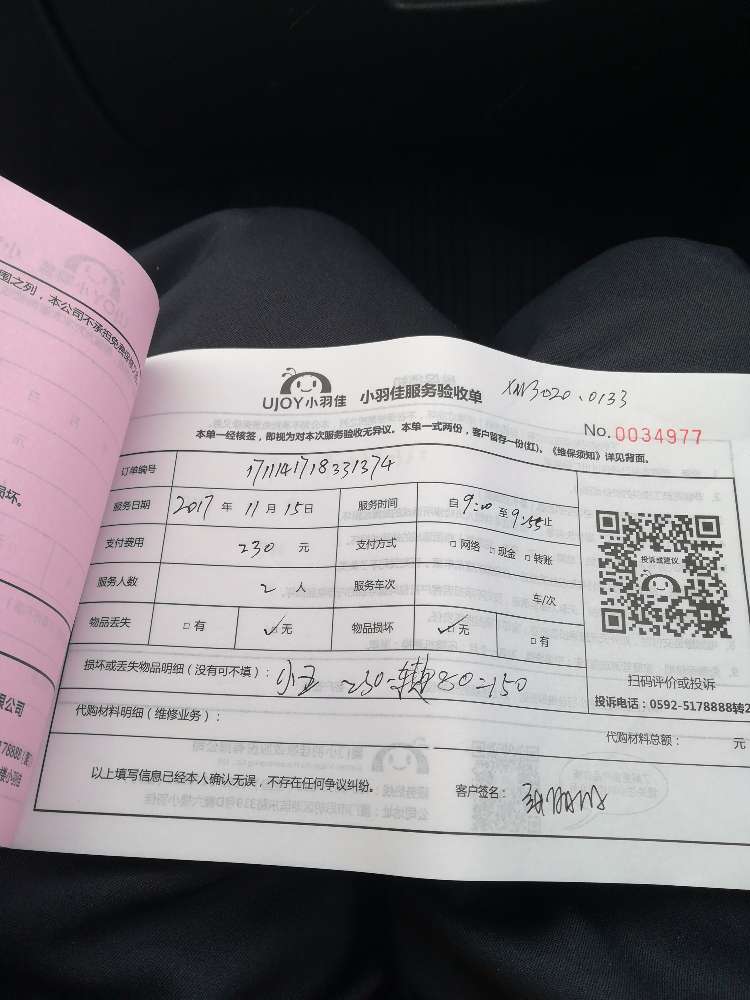 围之列，本公司不承担免费
损坏。
限公司
UJOY小羽佳 小羽佳服务验收单 XN3020、0133
No.0034977
本单一经核签，即视为对本次服务验收无异议。本单一式两份，客户留存一份(红)。《维保须知》详见背面。
订单编号 1711141718331374
服务日期 2017年11月15日 服务时间 自9:00至9:55止
支付费用 230元 支付方式 □网络 □现金 □转账
服务人数 2人 服务车次 车/次
物品丢失 □有 ☑无 物品损坏 ☑无 □有
投诉或建议
扫码评价或投诉
投诉电话：0592-5178888转2
损坏或丢失物品明细（没有可不填）： 小王 230-转80=150
代购材料明细（维修业务）： 代购材料总额： 元
以上填写信息已经本人确认无误，不存在任何争议纠纷。 客户签名：